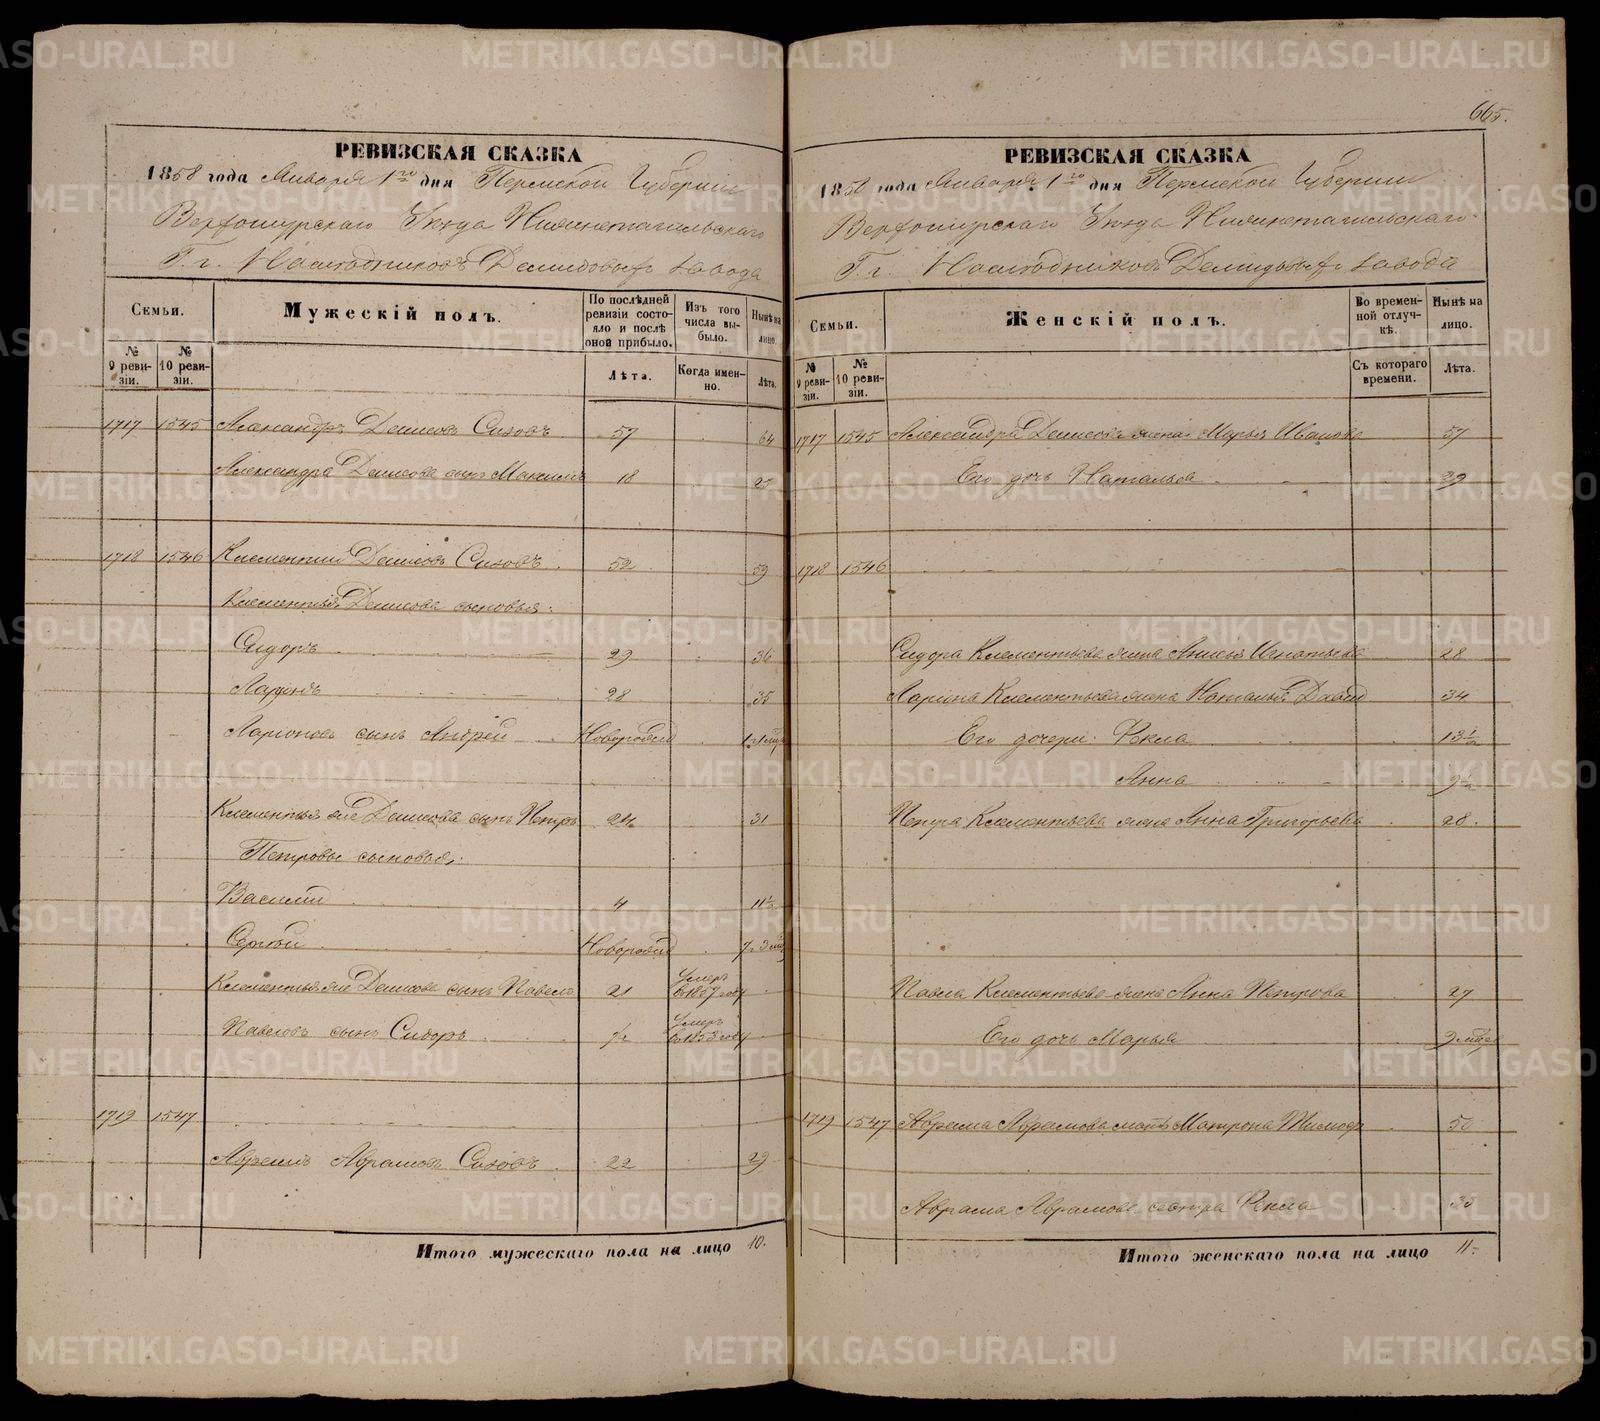 665.
РЕВИЗСКАЯ СКАЗКА
1858 года Января 1го дня Пермской Губернии
Верхотурскаго Уѣзда Нижнетагильскаго
Г.г. Наслѣдниковъ Демидовыхъ завода
Семьи.
Мужескій полъ.
По послѣдней ревизіи состояло и послѣ оной прибыло.
Изъ того числа выбыло.
Нынѣ на лицо.
№ 9 ревизіи.
№ 10 ревизіи.
Лѣта.
Когда именно.
Лѣта.
1717 1545 Александръ Денисовъ Сизовъ 57 64
Александра Денисова сынъ Максимъ 18 25
1718 1546 Клементий Денисовъ Сизовъ 52 59
Клементья Денисова сыновья:
Сидоръ 29 36
Ларіонъ 28 35
Ларіоновъ сынъ Андрей Новорожд
Клементья же Денисова сынъ Петръ 24 31
Петровы сыновья:
Василий 4 11½
Сергѣй Новорожд
Клементья же Денисова сынъ Павелъ 21 Умеръ въ 1857 году
Павловъ сынъ Сидоръ ½ Умеръ въ 1853 году
1719 1547
Абрамъ Абрамовъ Сизовъ 22 29
Итого мужескаго пола на лицо 10.
РЕВИЗСКАЯ СКАЗКА
1858 года Января 1го дня Пермской Губернии
Верхотурскаго Уѣзда Нижнетагильскаго
Г.г. Наслѣдниковъ Демидовыхъ завода
Семьи.
Женскій полъ.
Во временной отлучкѣ.
Нынѣ на лицо.
№ 9 ревизіи.
№ 10 ревизіи.
Съ котораго времени.
Лѣта.
1717 1545 Александра Денисова жена Марья Иванова 57
Его дочь Наталья 29
1718 1546
Сидора Клементьева жена Анисья Игнатьева 28
Ларіона Клементьева жена Наталья Давыд 34
Его дочери: Фекла 13½
Анна 9½
Петра Клементьева жена Анна Григорьева 28.
Павла Клементьева жена Анна Петрова 27
Его дочь Марья 9 мѣся
1719 1547 Абрама Абрамова мать Матрона Тимоф 50
Абрама Абрамова сестра Фекла 35
Итого женскаго пола на лицо 11
METRIKI.GASO-URAL.RU